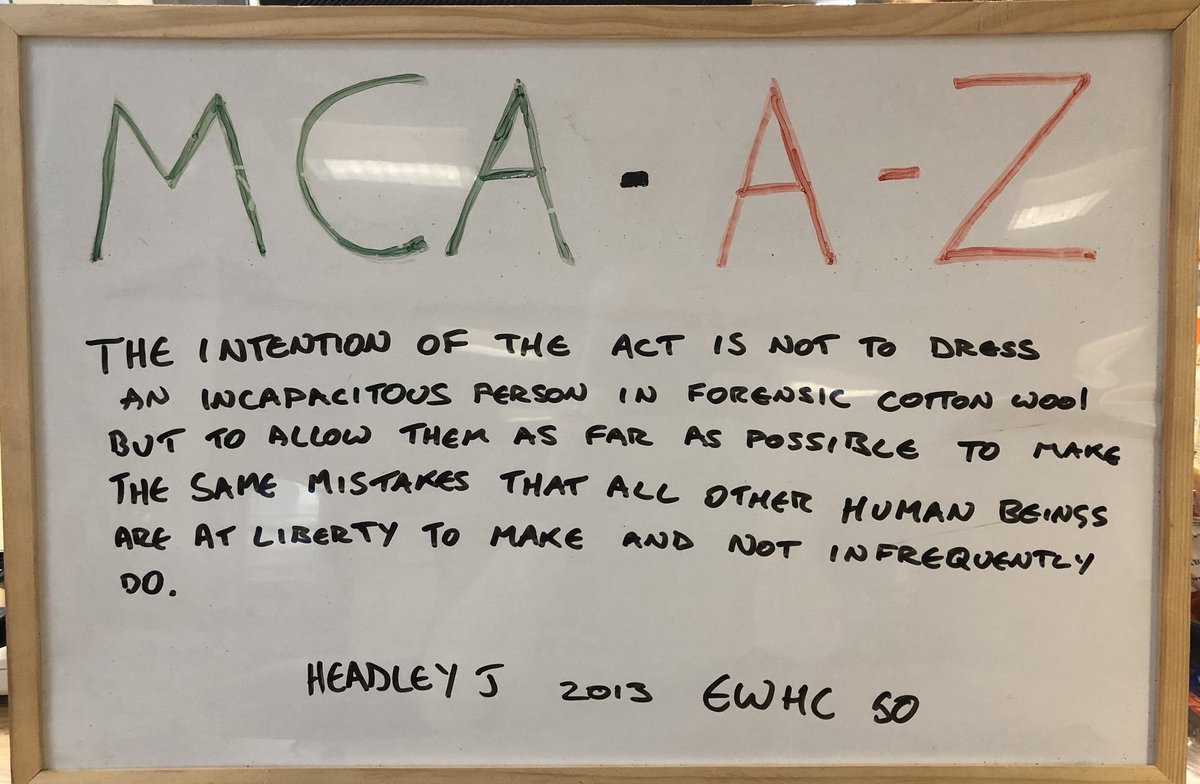 MCA - A - Z
THE INTENTION OF THE ACT IS NOT TO DRESS
AN INCAPACITOUS PERSON IN FORENSIC COTTON WOOl
BUT TO ALLOW THEM AS FAR AS POSSIBLE TO MAKE
THE SAME MISTAKES THAT ALL OTHER HUMAN BEINGS
ARE AT LIBERTY TO MAKE AND NOT INFREQUENTLY
DO.
HEADLEY J 2013 EWHC 50